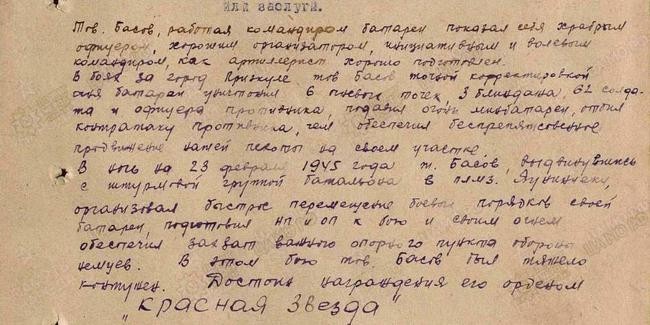 или заслуги.
Тов. Басов, работая командиром батареи показал себя храбрым
офицером, хорошим организатором, инициативным и волевым
командиром, как артиллерист хорошо подготовлен.
В боях за город Приэкуле тов Басов точной корректировкой
огня батареи уничтожил 6 огневых точек, 3 блиндажа, 62 солда-
та и офицера противника, подавил огонь минбатареи, отбил
контратаку противника, чем обеспечил беспрепятственное
продвижение нашей пехоты на своем участке.
В ночь на 23 февраля 1945 года т. Басов, выдвинувшись
с штурмовой группой батальона в
организовал быстрое перемещение боевых порядков своей
батареи, подготовил НП и ОП к бою и своим огнем
обеспечил захват важного опорного пункта обороны
немцев. В этом бою тов. Басов был тяжело
контужен. Достоин награждения его орденом
"Красная Звезда"